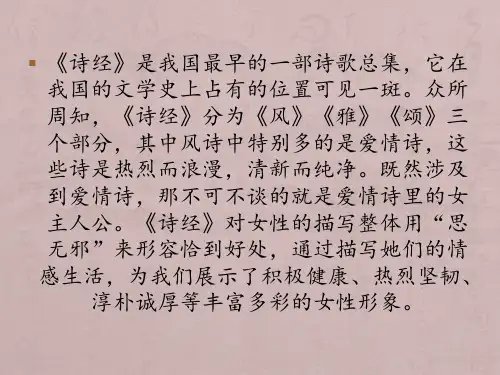 《诗经》是我国最早的一部诗歌总集，它在
我国的文学史上占有的位置可见一斑。众所
周知，《诗经》分为《风》《雅》《颂》三
个部分，其中风诗中特别多的是爱情诗，这
些诗是热烈而浪漫，清新而纯净。既然涉及
到爱情诗，那不可不谈的就是爱情诗里的女
主人公。《诗经》对女性的描写整体用“思
无邪”来形容恰到好处，通过描写她们的情
感生活，为我们展示了积极健康、热烈坚韧、
淳朴诚厚等丰富多彩的女性形象。